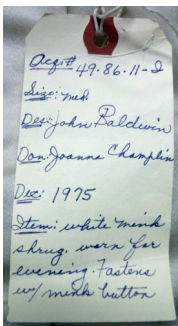 Acq# 49.86.11-I
Size: med.
Des: John Baldwin
Don: Joanna Champlin
Dec: 1975
Item: white mink
shrug. worn for
evening. Fastens
w/ mink button